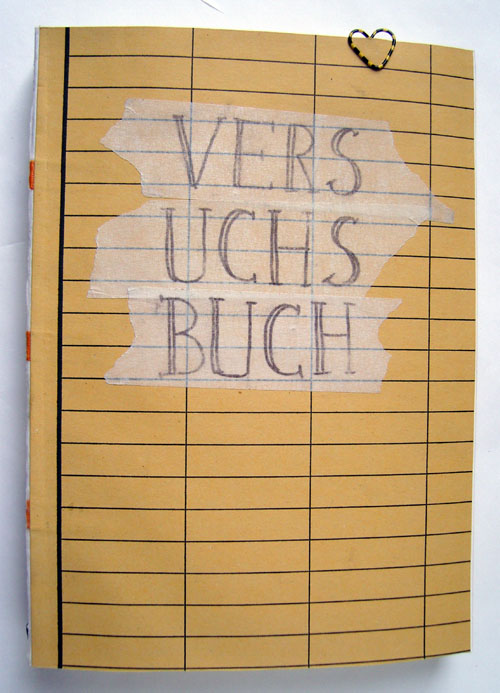 VERS
UCHS
BUCH